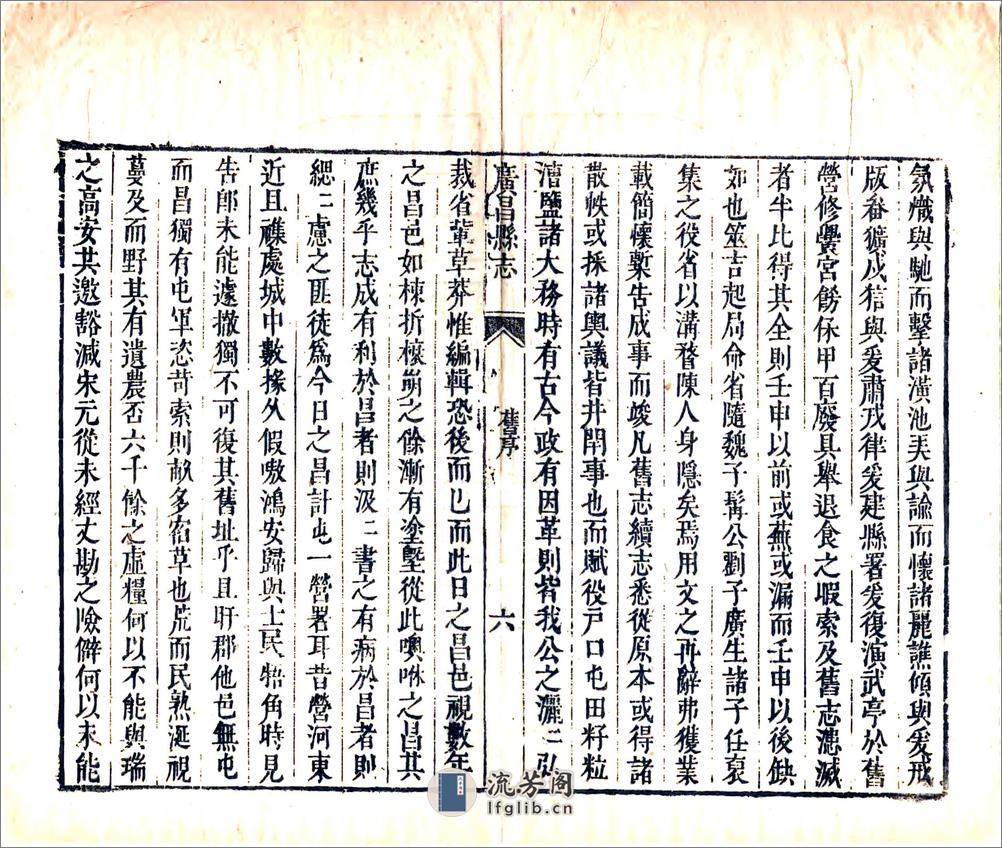 氛熾與馳而擊諸潢池美與諭而懷諸麗譙傾與爰戒
版畚獷戍猜與爰肅戎律爰建縣署爰復演武亭於舊
營修黌宮餝休甲百廢具舉退食之暇索及舊志漶滅
者半比得其全則壬申以前或蕪或漏而壬申以後缺
如也筮吉起局命省隨魏子髯公劉子廣生諸子任裒
集之役省以溝瞀陳人身隱矣焉用文之再辭弗獲業
載簡懷槧告成事而竣凡舊志續志悉從原本或得諸
散帙或採諸輿議皆井閈事也而賦役戸口屯田籽粒
漕鹽諸大務時有古今政有因革則皆我公之灑二弘
廣昌縣志
舊序
六
裁省輩草莽惟編輯恐後而已而此日之昌邑視數年
之昌邑如棟折榱崩之餘漸有塗墍從此噢咻之昌其
庶幾乎志成有利於昌者則汲二書之有病於昌者則
縂二慮之匪徒爲今日之昌計屯一營署耳昔營河東
近且襍處城中數椽久假嗷鴻安歸與士民牾角時見
告郎未能遽撤獨不可復其舊址乎且盱郡他邑無屯
而昌獨有屯軍恣苛索則畝多宿草也荒而民熟涎視
蔓及而野其有遺農否六千餘之虛糧何以不能與瑞
之高安共邀豁減宋元從未經丈勘之險僻何以未能
流芳阁
lfglib.cn